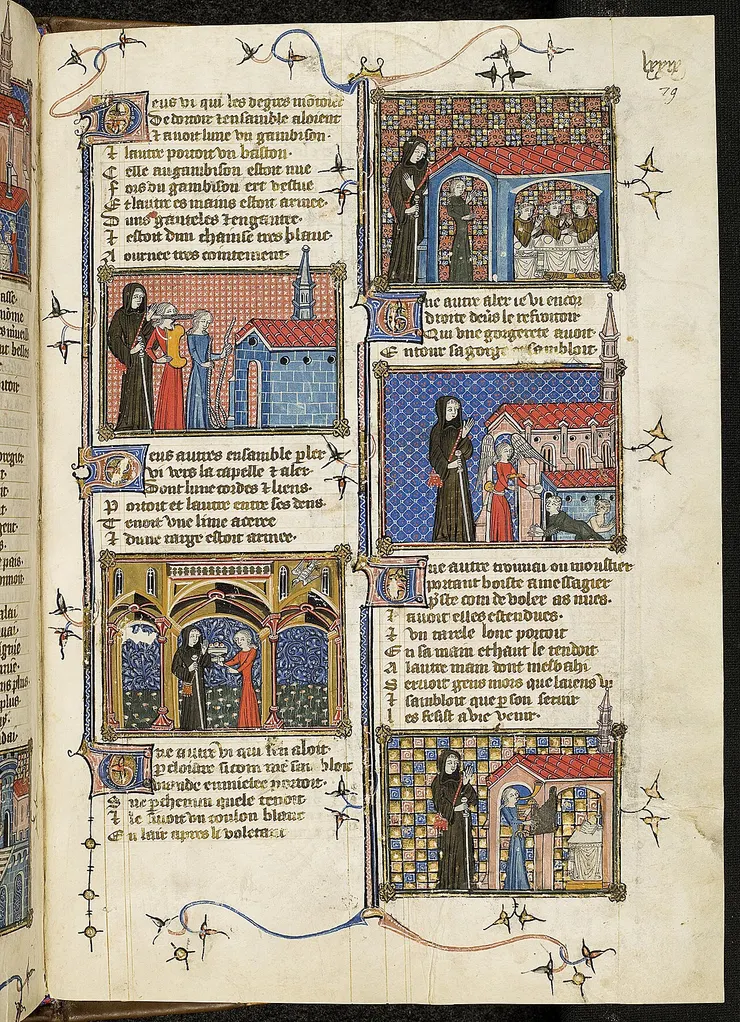 lxxix
79
Deus vi qui les degres
De dortoir ⁊ ensamble aloient
⁊ auoit lune vn gambison·
⁊ lautre portoit vn baston·
Celle au gambison estoit nue
Fors du gambison ert vestue
Et lautre es mains estoit armee·
Duns ganteles ⁊ engantee·
⁊ estoit dun chainse tres blanc·
Aournee tres cointement·
Deus autres ensamble
vi vers la capelle ⁊ aler·
Dont lune cordes ⁊ liens·
Portoit et lautre entre ses dens·
Tenoit vne lime aceree
⁊ dune targe estoit armee·
Vne autre vi qui sen aloit·
p cloistre si com
viande portoit·
Sus pchemin quele tenoit
⁊ le suioit vn coulon blanc
En lair apres li voletant
Vne autre aler ie vi encor
droite deus le refroitoir
Qui vne gorgerete auoit·
Entour sa gorge sambloit·
Vne autre trouuai ou moustier
portant boiste a messagier
com de voler as nues·
auoit elles estendues·
⁊ vn tarele lonc portoit
En sa main et haut le tendoit
A lautre main dont mesbahi
Seruoit gens mors que laiens vi
⁊ sambloit que p son seruir
les feist a vie venir·